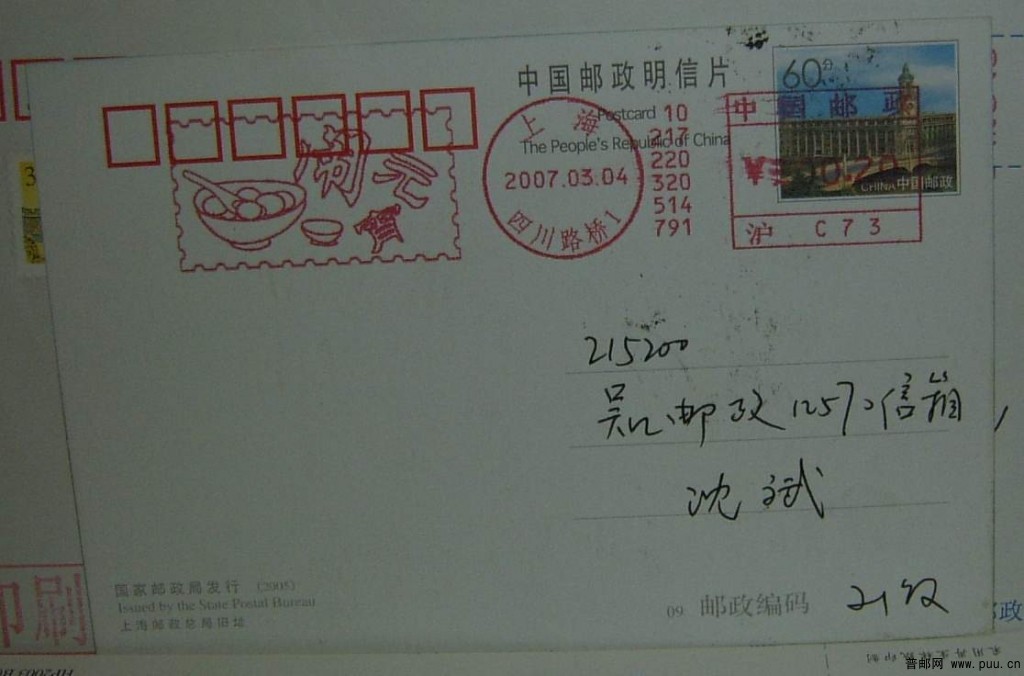 中国邮政明信片
Postcard
The People's Republic of China
60分
CHINA中国邮政
闹元
上海
2007.03.04
四川路桥1
10
217
220
320
514
791
中国邮政
沪 C73
215200
吴江邮政1257信箱
沈斌
国家邮政局发行 (2005)
Issued by the State Postal Bureau
上海邮政总局旧址
09 邮政编码
印刷
邮政
普邮网 www.puu.cn